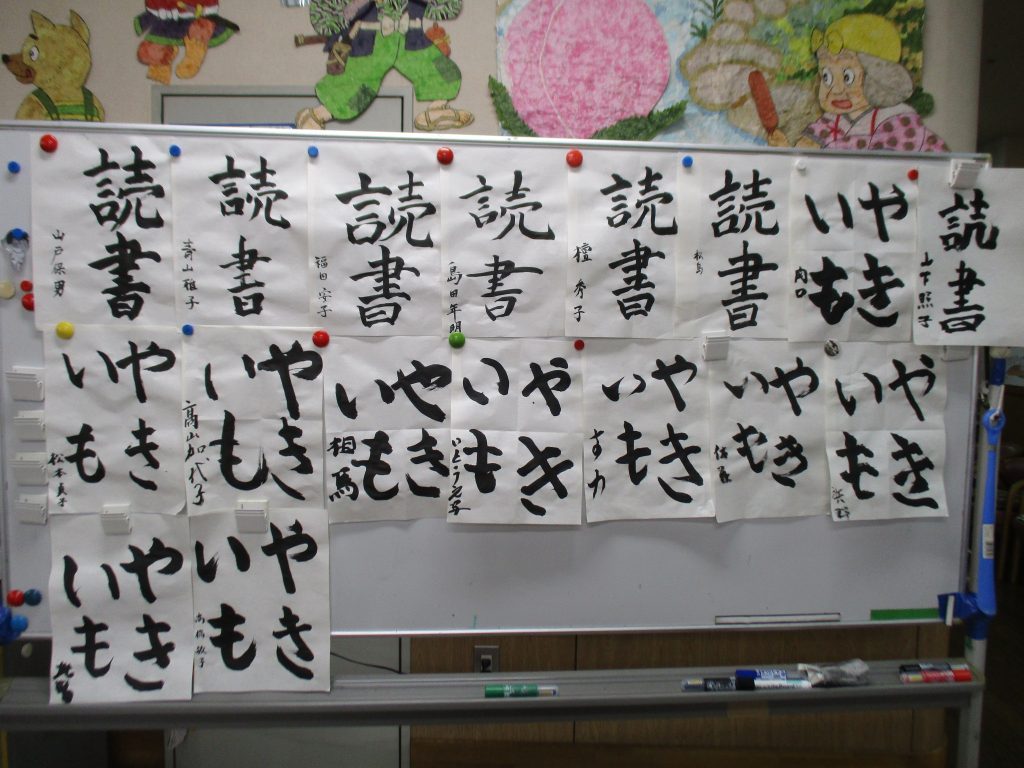 読書
山戸保男
読書
青山雅子
読書
福田安子
読書
島田年明
読書
檀秀子
読書
松島
やき
いも
内口
読書
山下照子
やき
いも
松本貞子
やき
いも
高山加代子
やき
いも
相馬
やき
いも
やき
いも
やき
いも
佐藤
やき
いも
やき
いも
やき
いも
高橋敏子